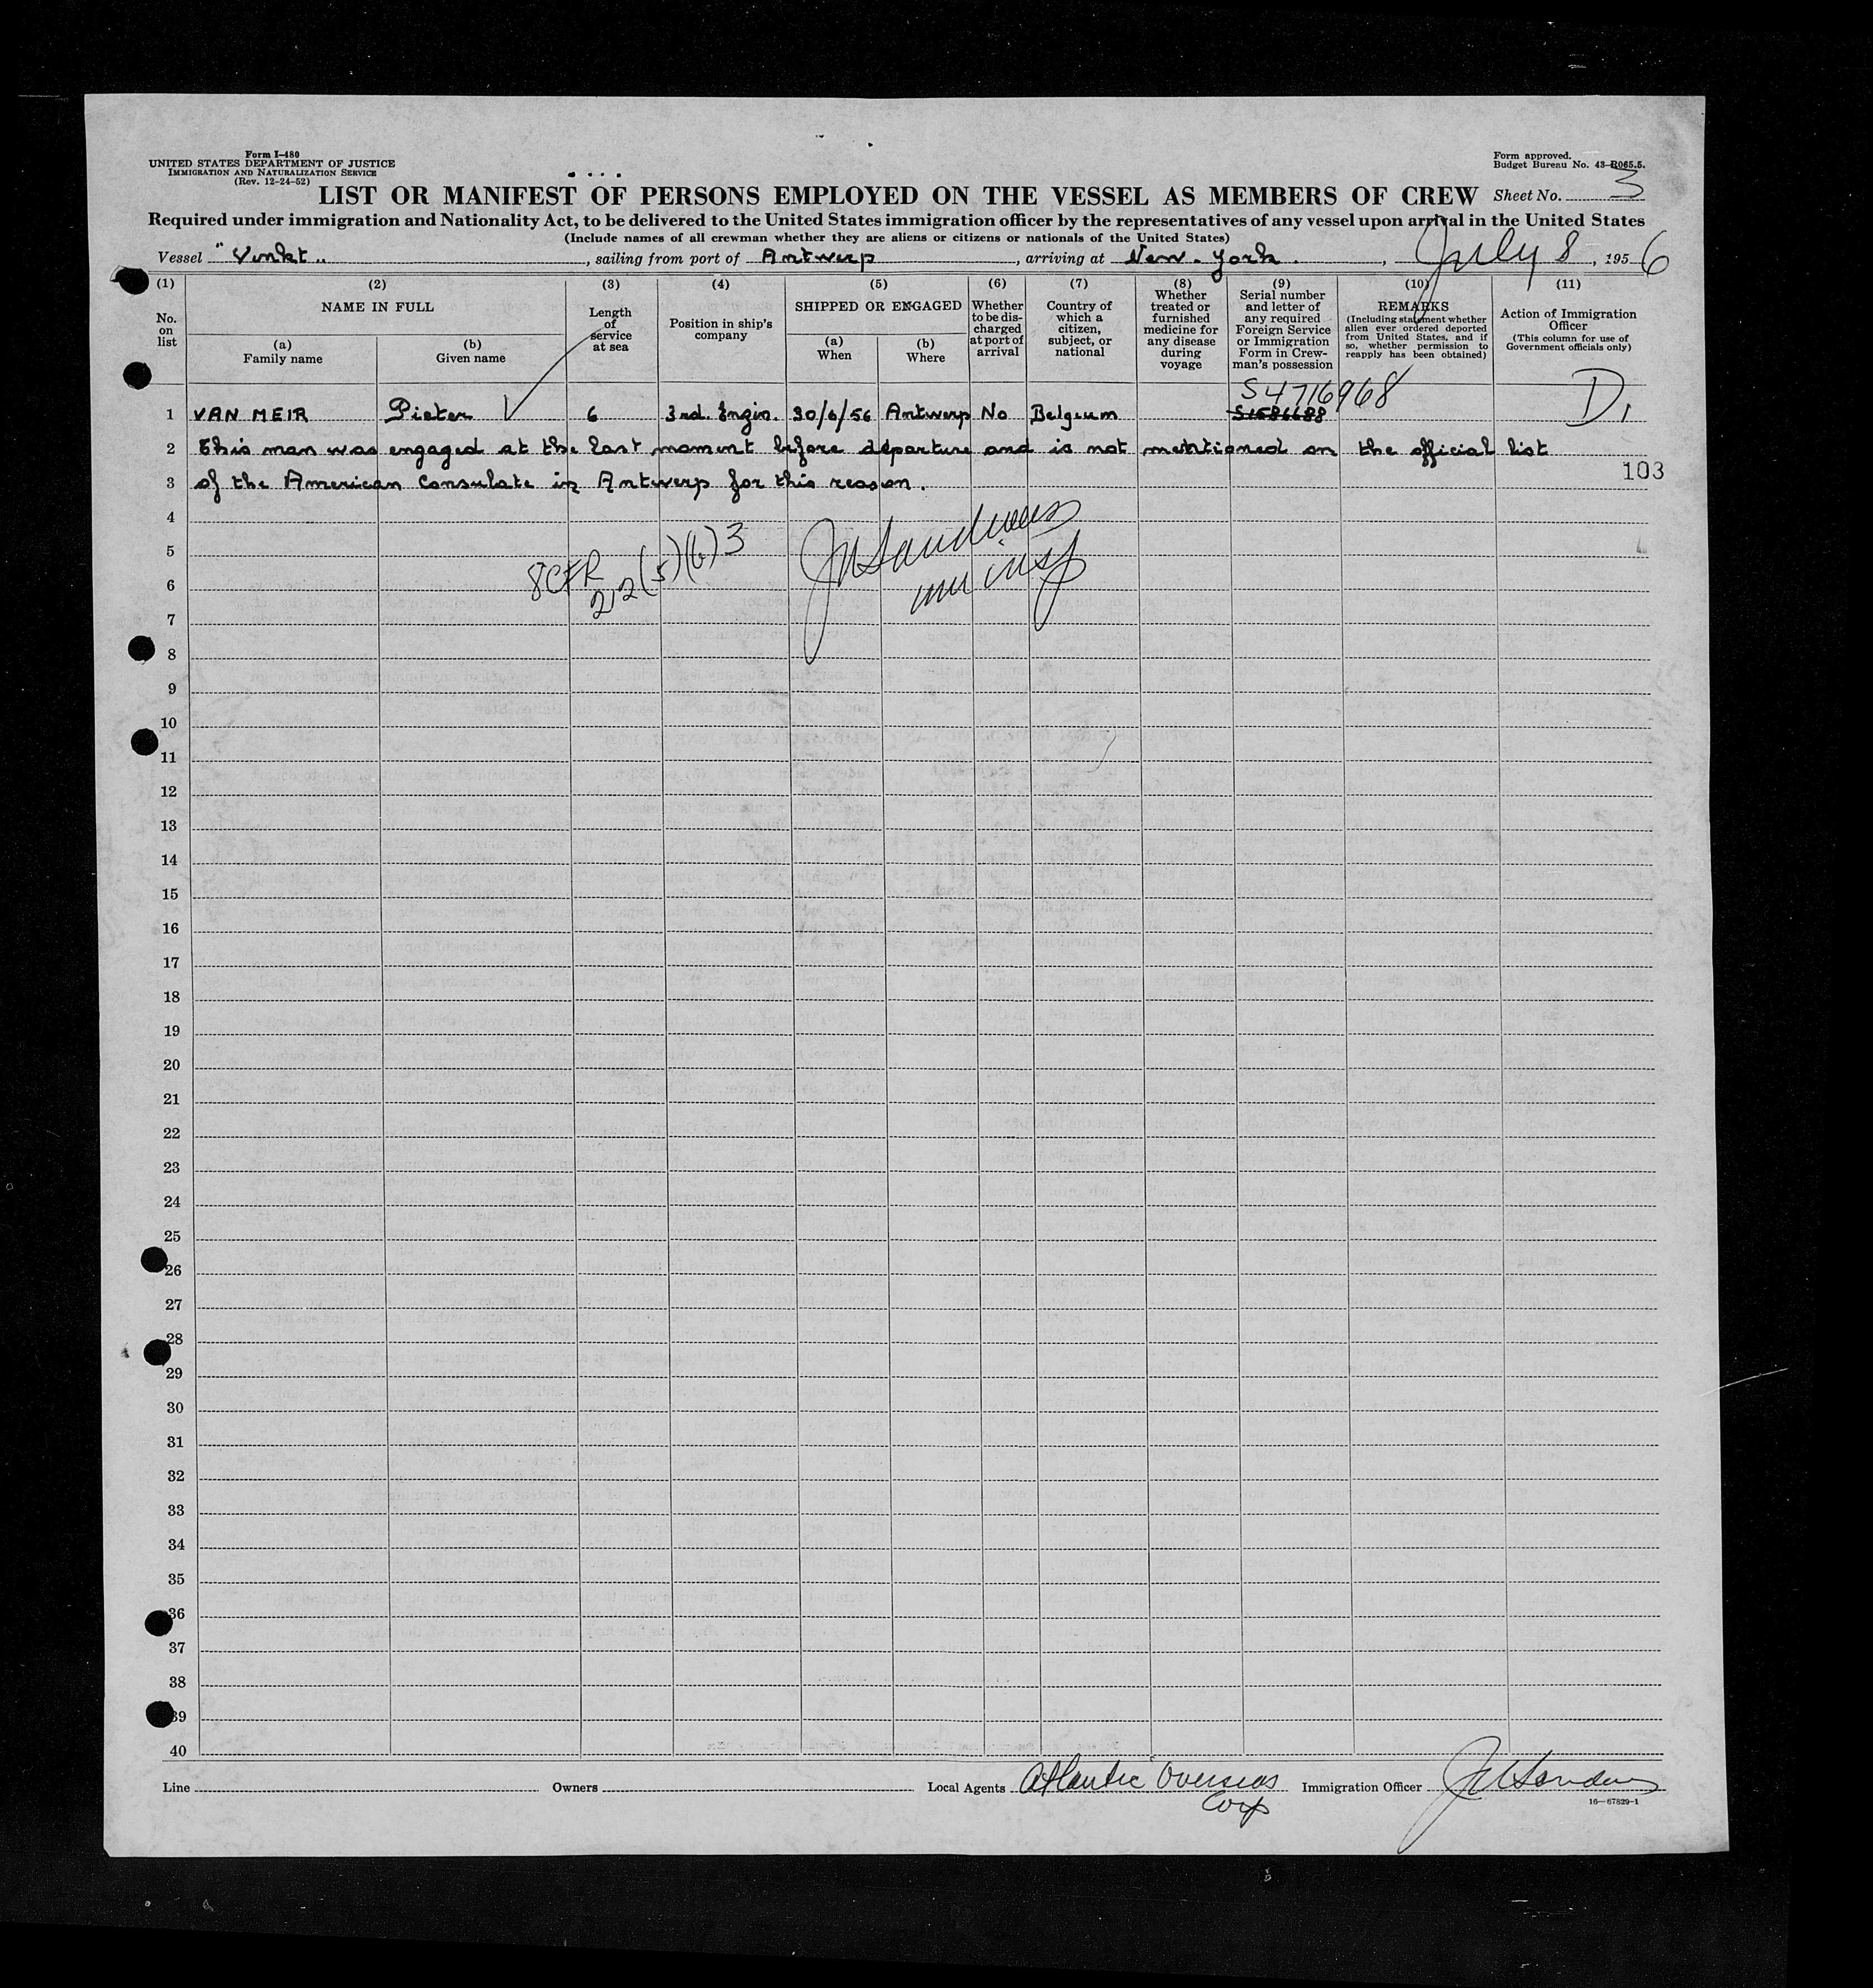 Form I-480
UNITED STATES DEPARTMENT OF JUSTICE
IMMIGRATION AND NATURALIZATION SERVICE
(Rev. 12-24-52)
Form approved.
Budget Bureau No. 43-R065.5.
LIST OR MANIFEST OF PERSONS EMPLOYED ON THE VESSEL AS MEMBERS OF CREW
Sheet No. 3
Required under immigration and Nationality Act, to be delivered to the United States immigration officer by the representatives of any vessel upon arrival in the United States
(Include names of all crewman whether they are aliens or citizens or nationals of the United States)
Vessel "Vinkt", sailing from port of Antwerp, arriving at New-York, July 8, 1956
(1) No. on list
(2) NAME IN FULL
(a) Family name
(b) Given name
(3) Length of service at sea
(4) Position in ship's company
(5) SHIPPED OR ENGAGED
(a) When
(b) Where
(6) Whether to be discharged at port of arrival
(7) Country of which a citizen, subject, or national
(8) Whether treated or furnished medicine for any disease during voyage
(9) Serial number and letter of any required Foreign Service or Immigration Form in Crewman's possession
(10) REMARKS (Including statement whether alien ever ordered deported from United States, and if so, whether permission to reapply has been obtained)
(11) Action of Immigration Officer (This column for use of Government officials only)
S4716968
1 VAN MEIR Pieter 6 3rd. Engin. 30/6/56 Antwerp No Belgium S1586688 D1
2 This man was engaged at the last moment before departure and is not mentioned on the official list
103
3 of the American Consulate in Antwerp for this reason.
4
5
6
7
8
9
10
11
12
13
14
15
16
17
18
19
20
21
22
23
24
25
26
27
28
29
30
31
32
33
34
35
36
37
38
39
40
8CFR
212(5)(6)3
Line
Owners
Local Agents Atlantic Overseas
Corp
Immigration Officer
16—67829-1